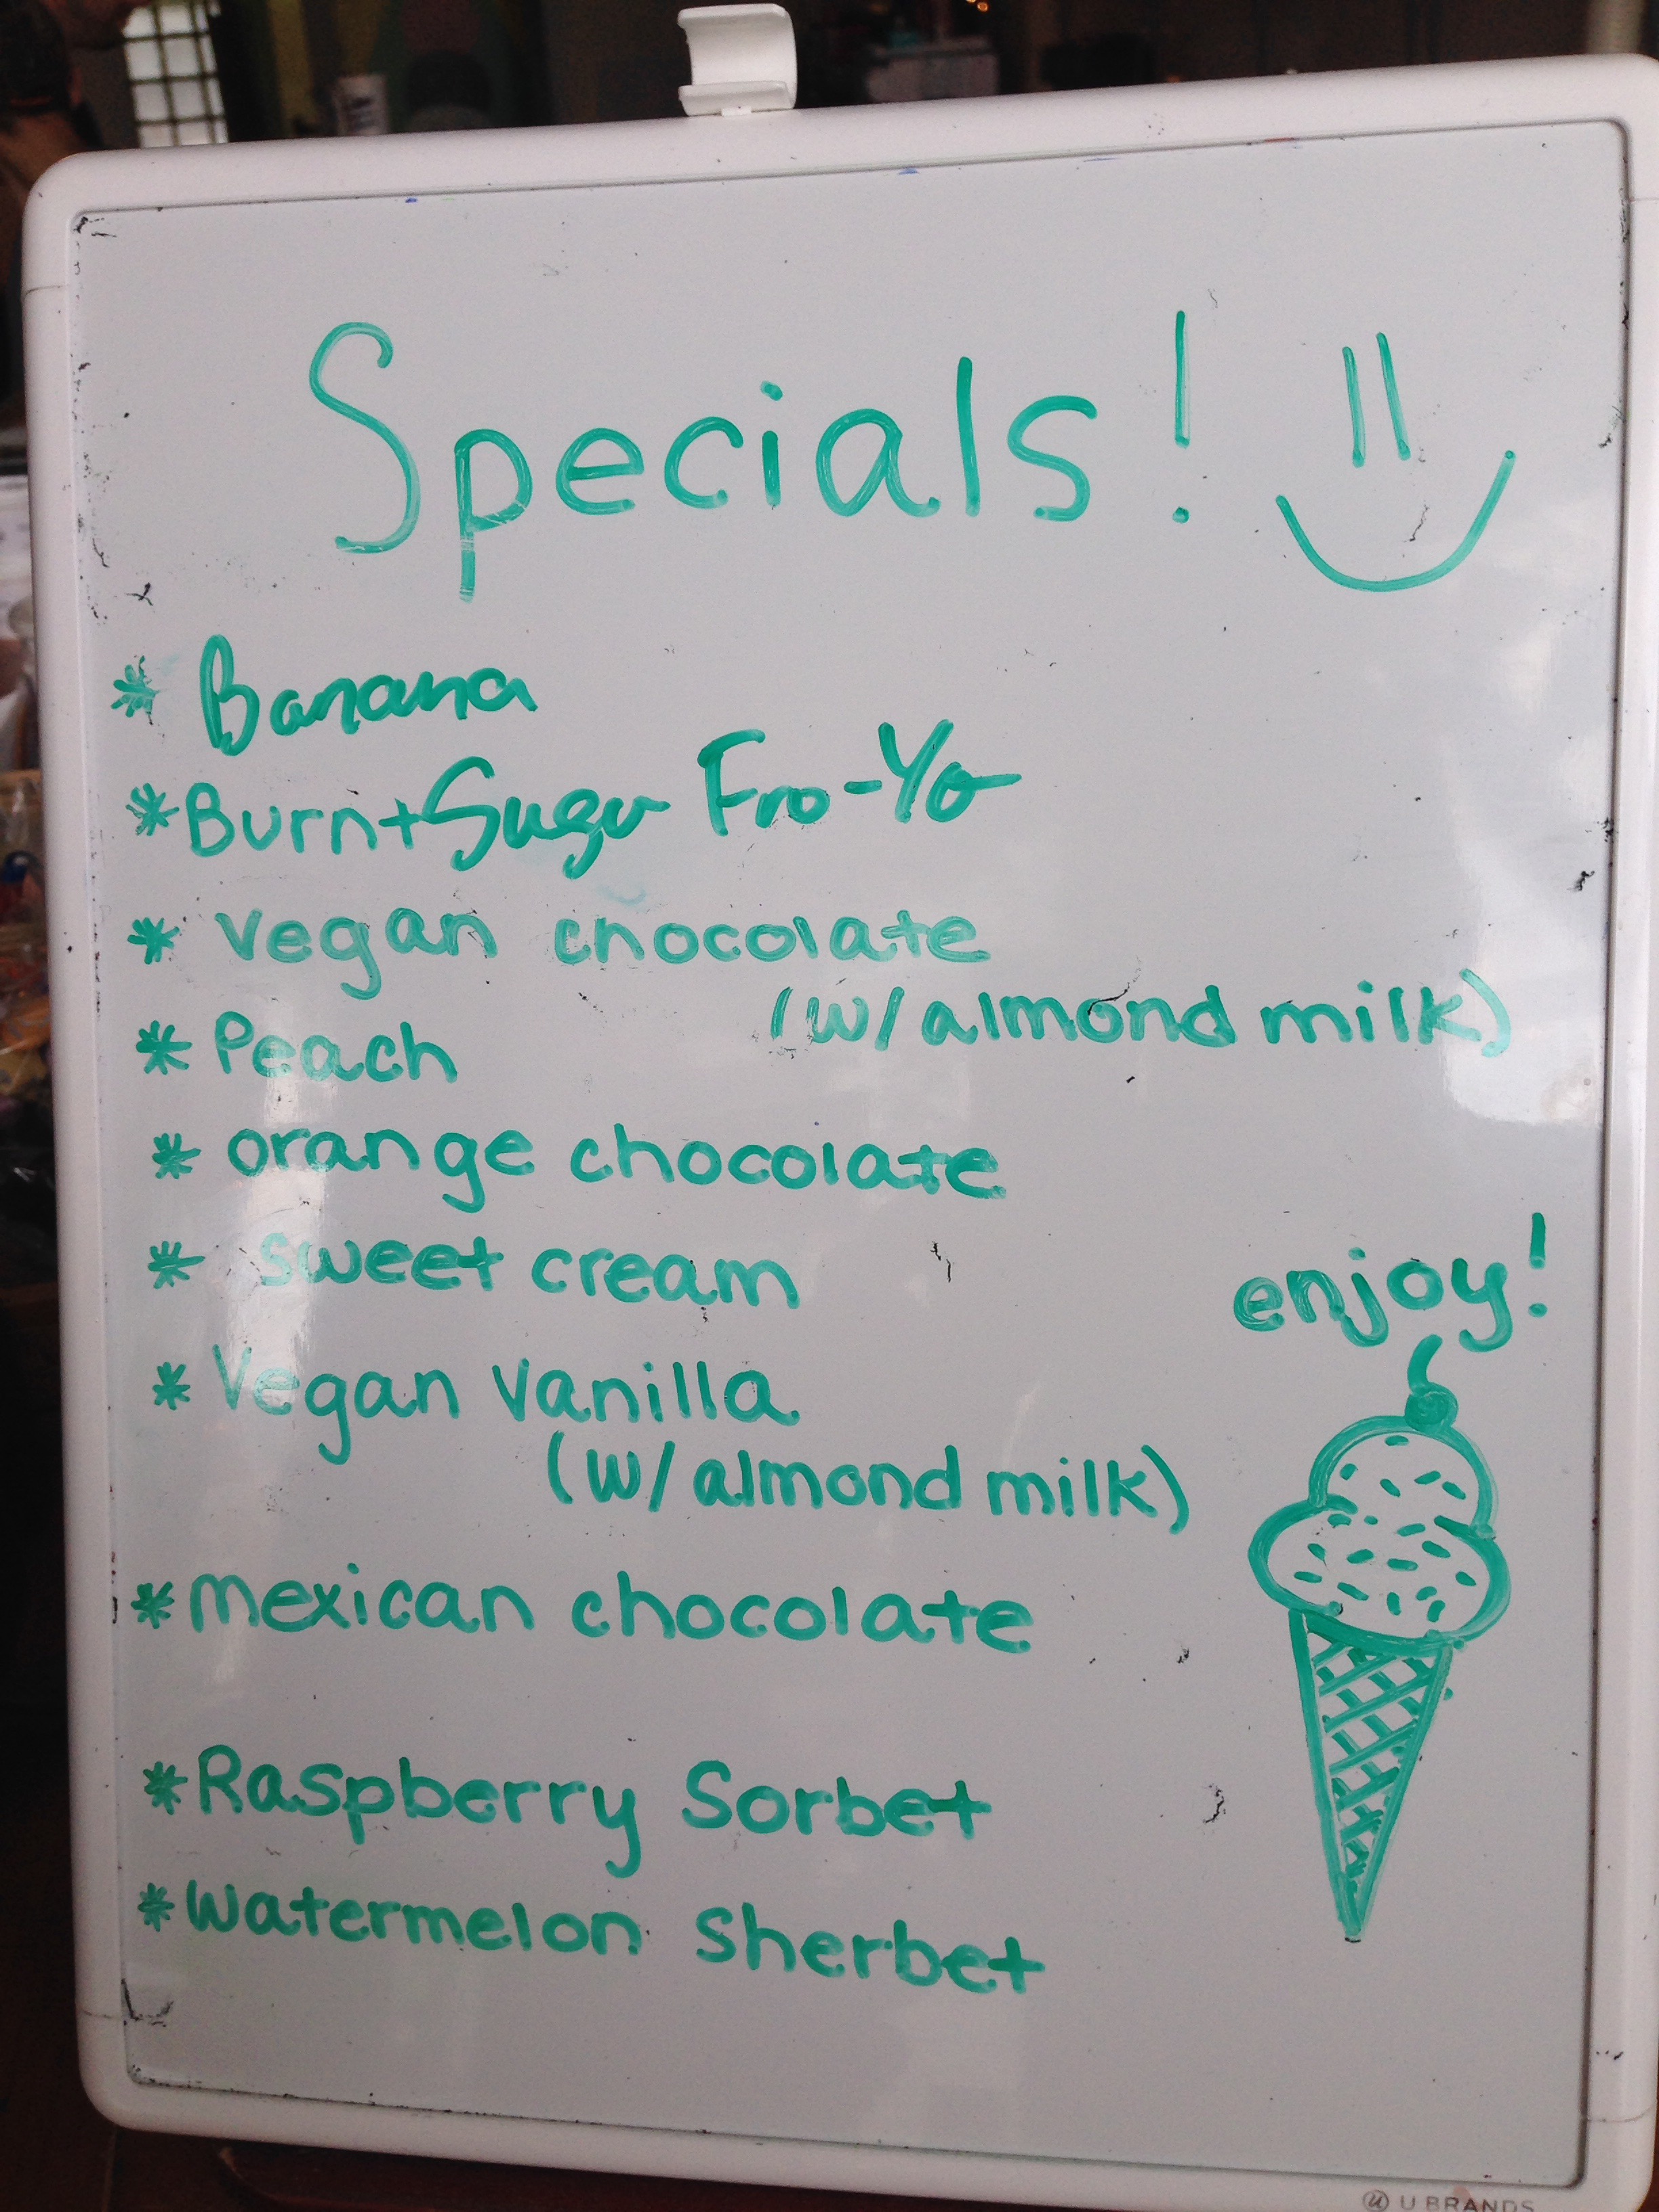 Specials!
* Banana
* Burnt Sugar Fro-Yo
* Vegan chocolate
(w/ almond milk)
* Peach
* orange chocolate
* sweet cream
enjoy!
* Vegan Vanilla
(w/ almond milk)
* mexican chocolate
* Raspberry Sorbet
* Watermelon Sherbet
U BRANDS